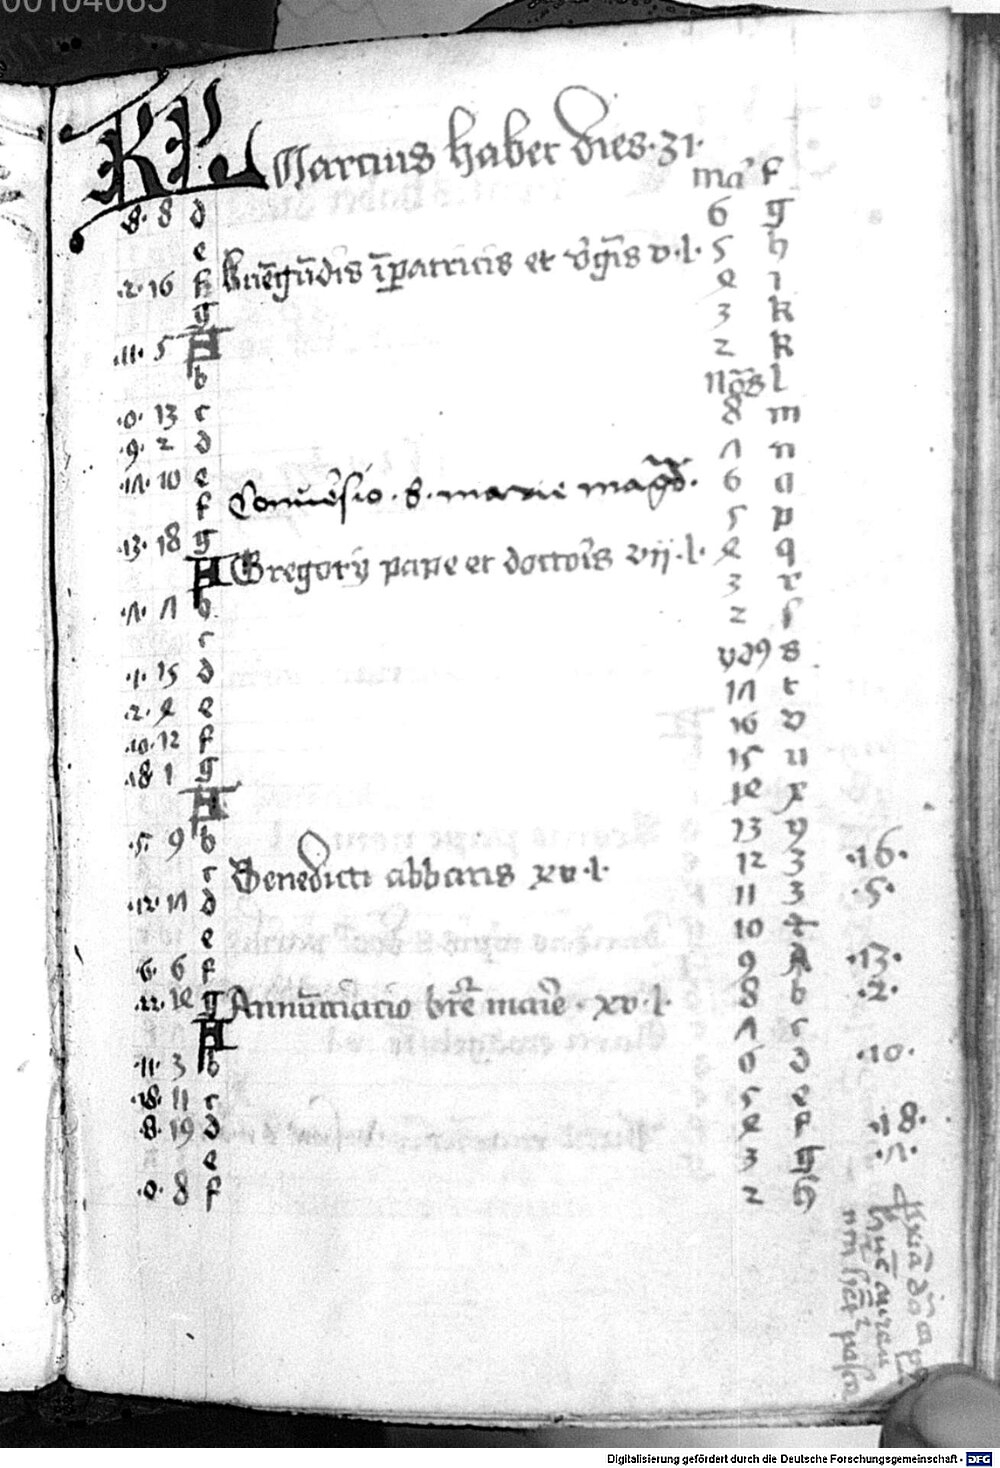 00104065
KL Marcius habet dies·31·
ma' f
·8· 8 d 6 g
e 5 h
·2· 16 f kunegundis imperatricis et virginis v·l· 4 i
g 3 k
·11· 5 A 2 k
b nonas l
·0· 13 c 8 m
·9· 2 d Λ n
·1Λ· 10 e 6 o
f Conversio · s · marie magd. 5 p
·13· 18 g 4 q
A Gregorij pape et doctoris vij·l· 3 r
·Λ· Λ b 2 s
c ydus s
·1· 15 d 1Λ t
·2· 4 e 16 v
·10· 12 f 15 u
·18· 1 g 14 x
A 13 y
·5· 9 b 12 3 ·16·
c Benedicti abbatis xv·l· 11 3 ·5·
·12· 1Λ d 10 t
e 9 A ·13·
·6· 6 f 8 b ·2·
14 g Annunciacio bte marie · xv·l· Λ c
A 6 d ·10·
·11· 3 b 5 e
·18· 11 c 4 f ·18·
·8· 19 d 3 g ·Λ·
e 2 h
·0· 8 f
Digitalisierung gefördert durch die Deutsche Forschungsgemeinschaft · DFG